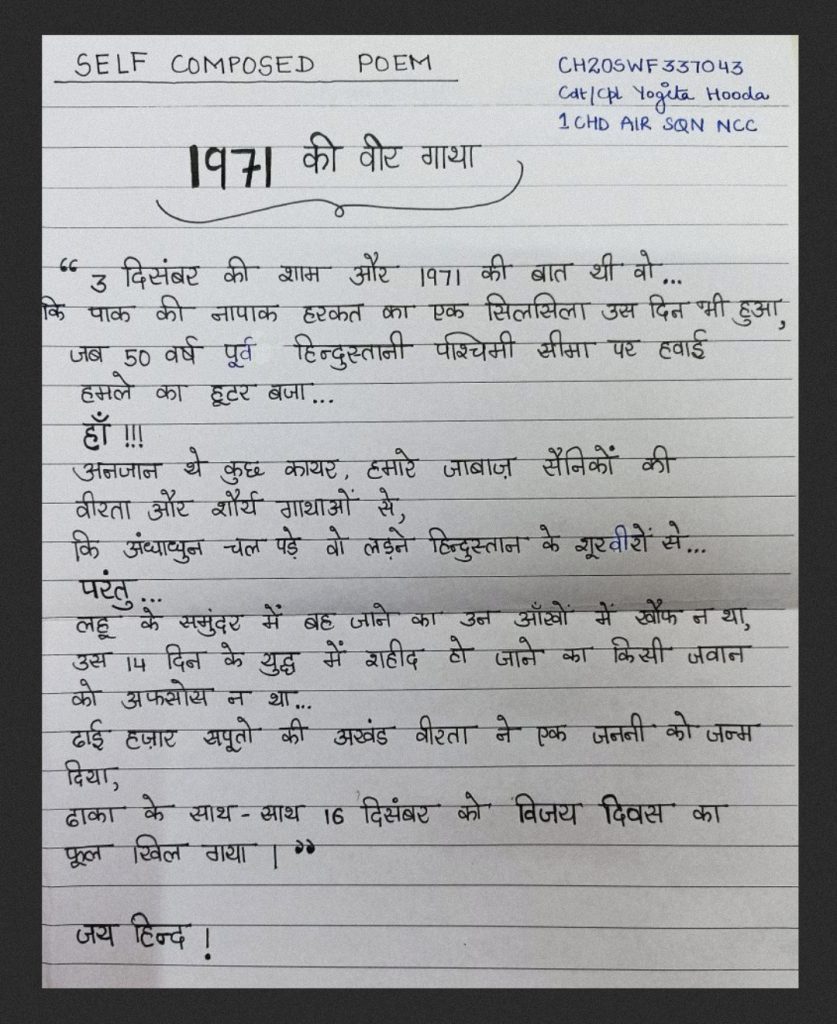 SELF COMPOSED POEM
CH20SWF337043
Cdt/Cpl Yogita Hooda
1 CHD AIR SQN NCC
1971 की वीर गाथा
“ 3 दिसंबर की शाम और 1971 की बात थी वो...
कि पाक की नापाक हरकत का एक सिलसिला उस दिन भी हुआ,
जब 50 वर्ष पूर्व हिन्दुस्तानी पश्चिमी सीमा पर हवाई
हमले का हूटर बजा...
हाँ !!!
अनजान थे कुछ कायर, हमारे जाबाज़ सैनिकों की
वीरता और शौर्य गाथाओं से,
कि अंधाधुन चल पड़े वो लड़ने हिन्दुस्तान के शूरवीरों से...
परंतु...
लहू के समुंदर में बह जाने का उन आँखों में खौफ न था,
उस 14 दिन के युद्ध में शहीद हो जाने का किसी जवान
को अफसोस न था...
ढाई हज़ार सपूतो की अखंड वीरता ने एक जननी को जन्म
दिया,
ढाका के साथ-साथ 16 दिसंबर को विजय दिवस का
फूल खिल गया । ”
जय हिन्द !